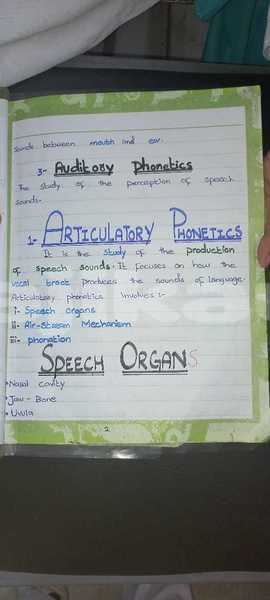 sounds between mouth and ear.
3- Auditory Phonetics
The study of the perception of speech
sounds.
1- ARTICULATORY PHONETICS
It is the study of the production
of speech sounds. It focuses on how the
vocal tract produces the sounds of language.
Articulatory phonetics involves :-
i- Speech organs
ii- Air-Stream Mechanism
iii- phonation
SPEECH ORGANS
• Nasal cavity
• Jaw - Bone
• Uvula
2